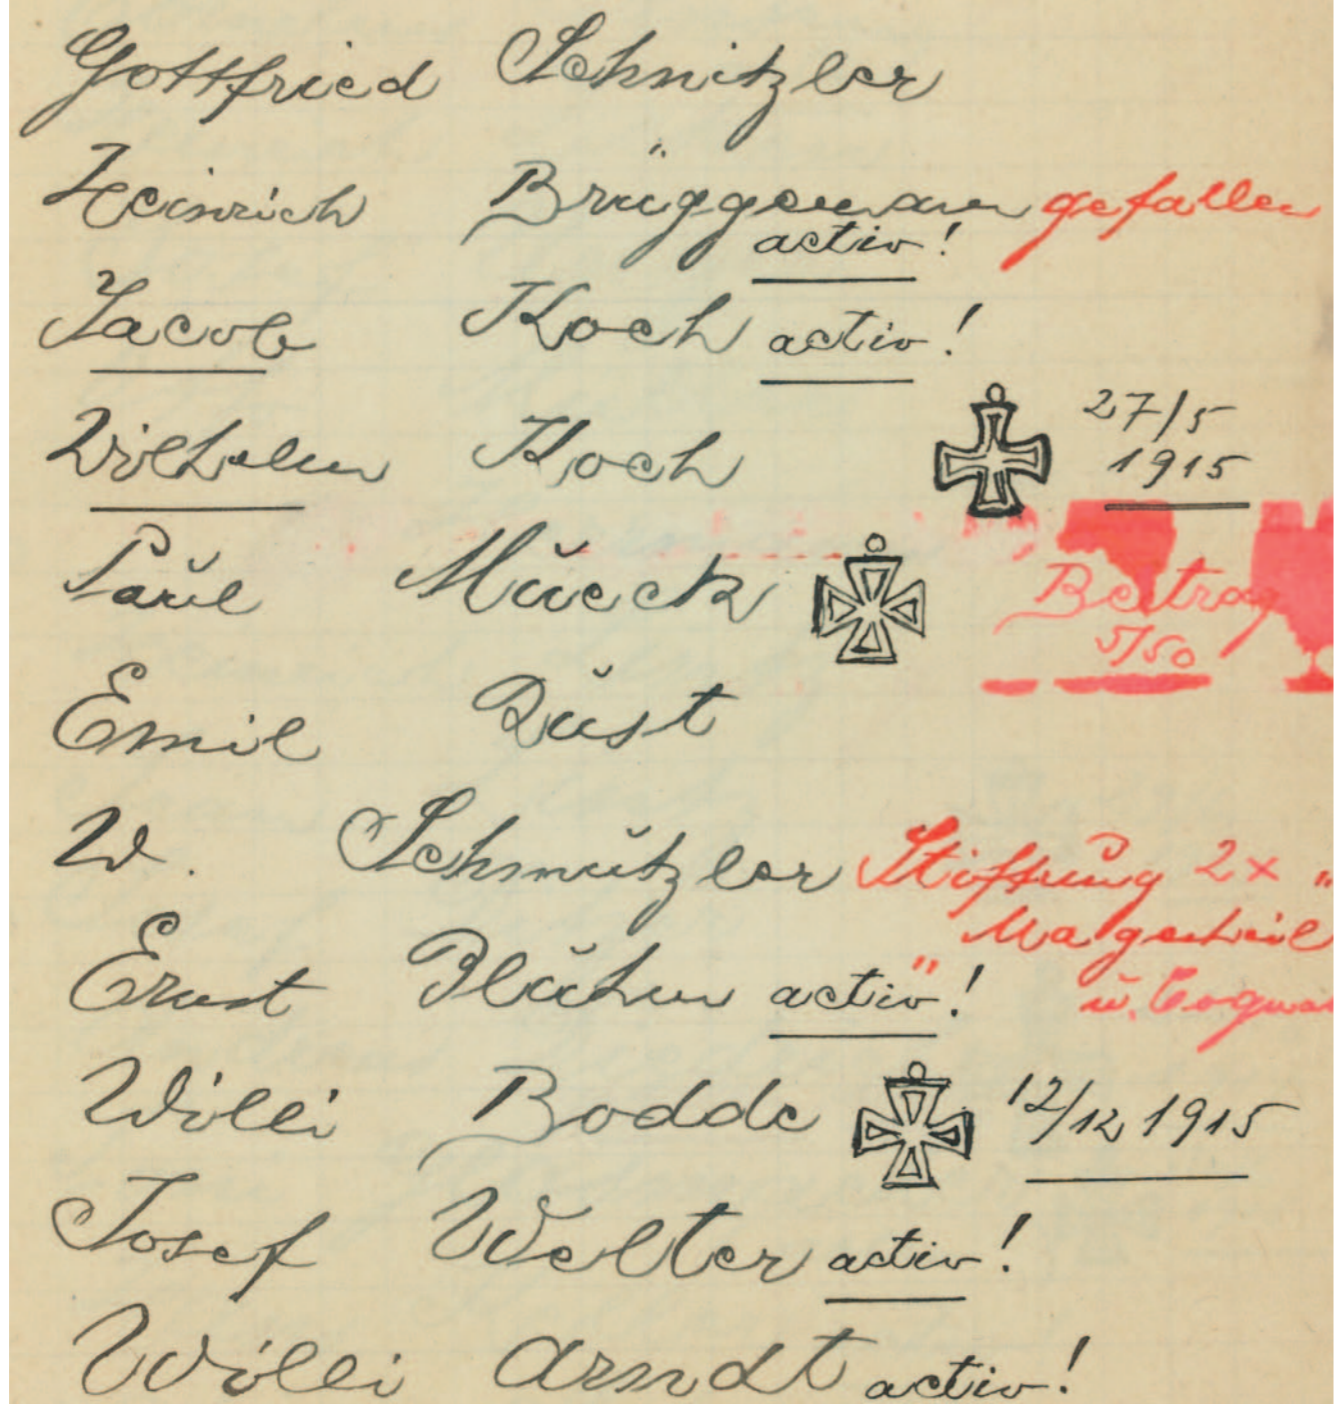 Gottfried Schnitzler
Heinrich Brüggemann gefallen
activ!
Jacob Koch activ!
Wilhelm Koch 27/5
1915
Paul Mueck Beitrag
5/50
Emil Rust
W. Schmutzler Stiftung 2x "
Magenheil"
Ernst Blühm activ! u. Cognac
Willi Bodde 12/12 1915
Josef Welter activ!
Willi Arndt activ!